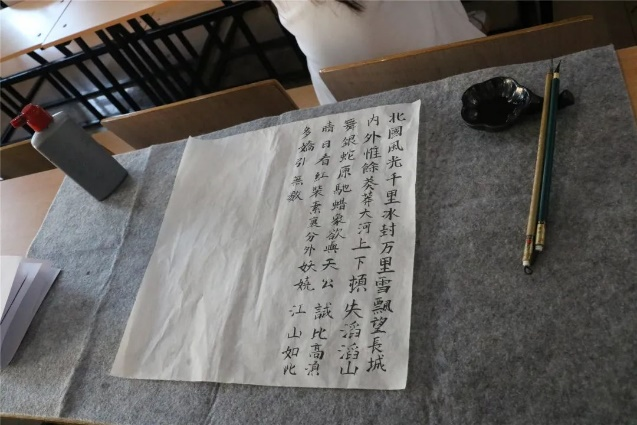 北國风光千里冰封万里雪飄望長城
内外惟餘莽莽大河上下頓失滔滔山
舞銀蛇原馳蜡象欲與天公誠比高湏
晴日看红裝素裹分外妖嬈江山如此
多嬌引無數